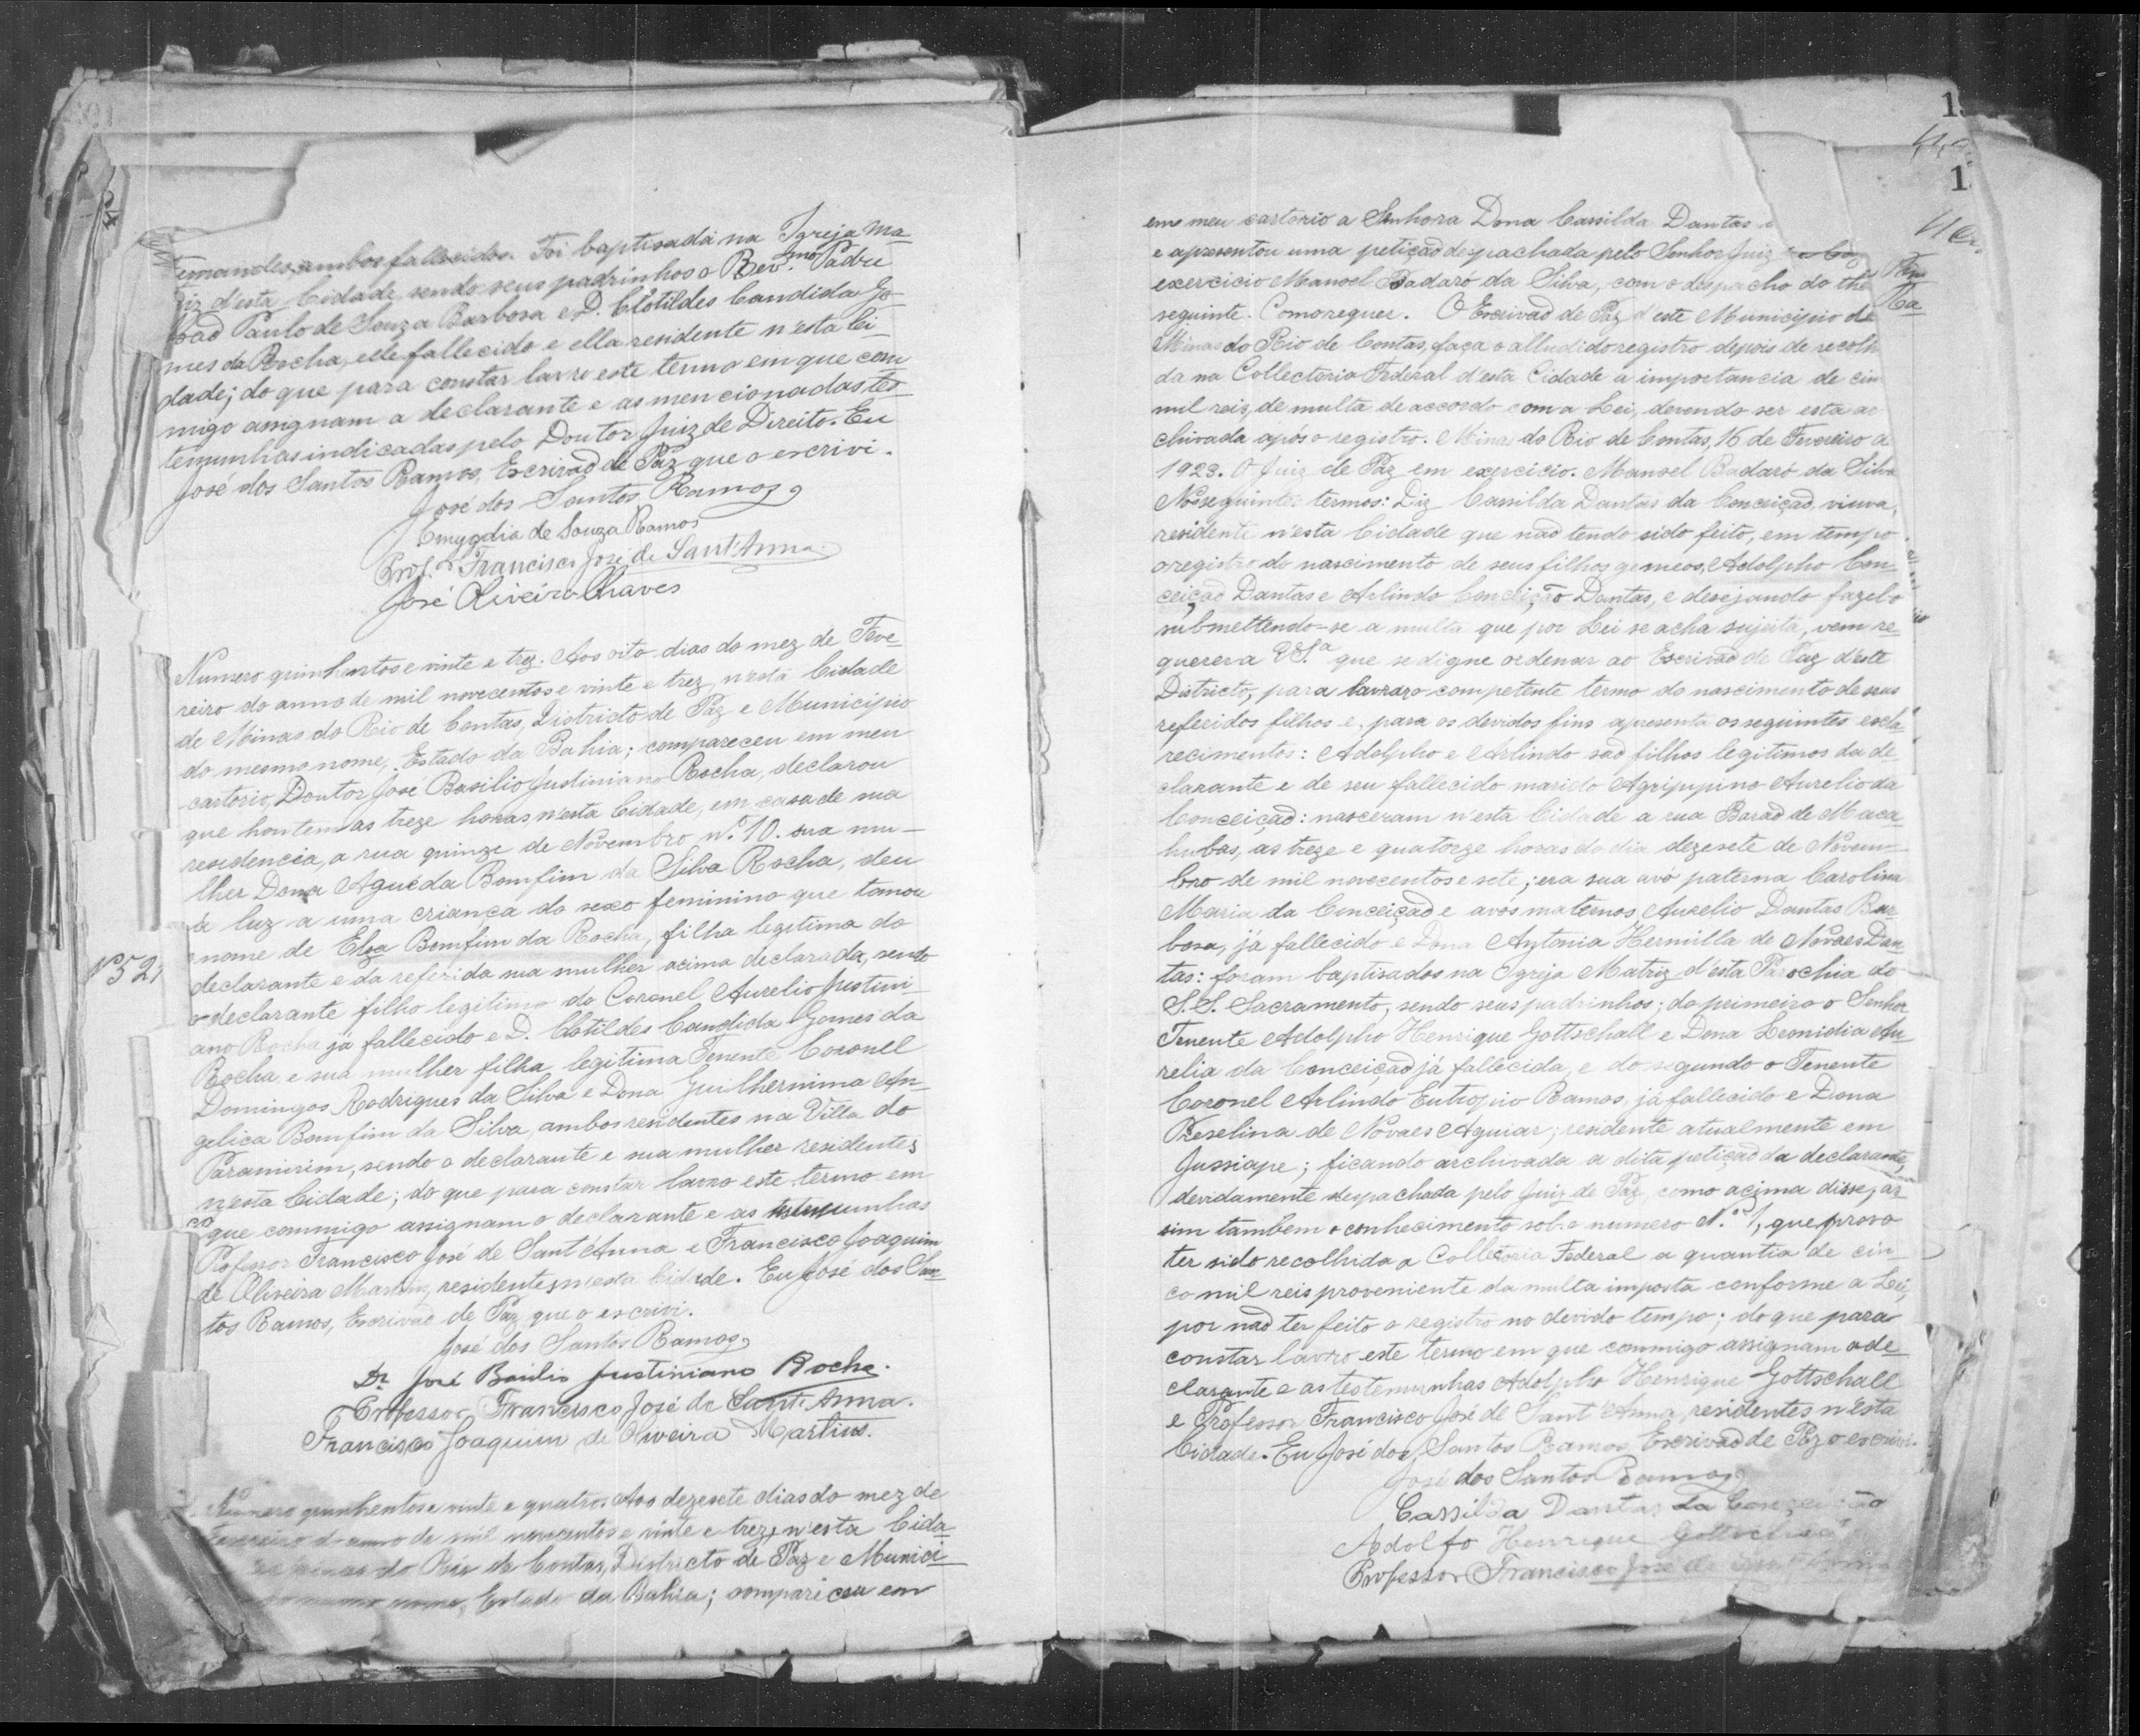 Fernandes, ambos fallecidos. Foi baptisada na Igreja Ma-
triz d'esta Cidade, sendo seus padrinhos o Rev.mo Padre
João Paulo de Souza Barbosa e D. Clotildes Candida Go-
mes da Rocha, elle fallecido e ella residente n'esta Ci-
dade; do que para constar lavro este termo em que com
migo assignam a declarante e as mencionadas tes-
temunhas indicadas pelo Doutor Juiz de Direito. Eu
José dos Santos Ramos, Escrivaõ de Paz que o escrivi.
José dos Santos Ramos
Emygdia de Souza Ramos
Prof.or Francisco José de Sant'Anna
José Ribeiro Chaves
Numero quinhentos e vinte e trez. Aos oito dias do mez de Feve-
reiro do anno de mil novecentos e vinte e trez, n'esta Cidade
de Minas do Rio de Contas, Districto de Paz e Municipio
do mesmo nome, Estado da Bahia; compareceu em meu
cartorio, Doutor José Basilio Justiniano Rocha, declarou
que hontem as treze horas, n'esta Cidade, em casa de sua
residencia, a rua quinze de Novembro, n.º 10. sua mu-
lher Dona Aguéda Bomfim da Silva Rocha, deu
á luz a uma criança do sexo feminino que tomou
o nome de Elza Bomfim da Rocha, filha legitima do
Nº 52
declarante e da referida sua mulher acima declarada, sendo
o declarante filho legitimo do Coronel Aurelio Justini-
ano Rocha já fallecido e D. Clotildes Candida Gomes da
Rocha, e sua mulher filha legitima Tenente Coronel
Domingos Rodrigues da Silva e Dona Guilhermina An-
gelica Bomfim da Silva, ambos residentes na Villa do
Paramirim, sendo o declarante e sua mulher residentes
n'esta Cidade; do que para constar lavro este termo em
que commigo assignam o declarante e as testemunhas
Professor Francisco José de Sant'Anna e Francisco Joaquim
de Oliveira Martins, residentes n'esta Cidade. Eu José dos San-
tos Ramos, Escrivaõ de Paz que o escrivi.
José dos Santos Ramos
Dr. José Basilio Justiniano Rocha.
Professor Francisco José de Sant'Anna.
Francisco Joaquim de Oliveira Martins.
Numero quinhentos e vinte e quatro. Aos dezesete dias do mez de
Fevereiro do anno de mil novecentos e vinte e trez, n'esta Cida-
de Minas do Rio de Contas, Districto de Paz e Munici-
mesmo nome, Estado da Bahia; compareceu em
em meu cartorio a Senhora Dona Cassilda Dantas
e apresentou uma petiçaõ despachada pelo Senhor Juiz
exercicio Manoel Badaró da Silva, com o despacho do the
seguinte. Como requer. O Escrivaõ de Paz d'este Municipio de
Minas do Rio de Contas, faça o alludido registro depois de recolh
da na Collectoria Federal d'esta Cidade a importancia de cin
mil reis, de multa de accordo com a Lei, devendo ser esta ar
chivada após o registro. Minas do Rio de Contas, 16 de Fevereiro d
1923. O Juiz de Paz em exercicio. Manoel Badaró da Silva
Nos seguintes termos: Diz Cassilda Dantas da Conceiçaõ, viuva,
residente n'esta Cidade que naõ tendo sido feito, em tempo
o registro do nascimento de seus filhos gemeos, Adolpho Con-
ceiçaõ Dantas e Arlindo Conceição Dantas, e desejando fazel-o
submettendo-se a multa que por Lei se acha sujeita, vem re-
querer a V.S.ª que se digne ordenar ao Escrivaõ de Paz d'este
Districto, para lavrar o competente termo do nascimento de seus
referidos filhos e, para os devidos fins apresenta os seguintes escla-
recimentos: Adolpho e Arlindo saõ filhos legitimos da de-
clarante e de seu fallecido marido Agrippino Aurelio da
Conceiçaõ: nasceram n'esta Cidade a rua Baraõ de Maca-
hubas, as treze e quatorze horas do dia dezesete de Novem-
bro de mil novecentos e sete; era sua avó paterna Carolina
Maria da Conceiçaõ e avós maternos, Aurelio Dantas Bar-
bosa, já fallecido e Dona Antonia Hermilla de Novaes Dan-
tas: foram baptisados na Igreja Matriz d'esta Parochia do
S.S. Sacramento, sendo seus padrinhos; do primeiro o Senhor
Tenente Adolpho Henrique Gottschall e Dona Leonidia Au-
relia da Conceiçaõ já fallecida, e do segundo o Tenente
Coronel Arlindo Eutropio Ramos, já fallecido e Dona
Reselina de Novaes Aguiar; residente atualmente em
Jussiape; ficando archivada a dita petiçaõ da declarante,
devidamente despachada pelo Juiz de Paz, como acima disse; as-
sim tambem o conhecimento sob o numero N.º 1, que prova
ter sido recolhida a Colletoria Federal a quantia de cin-
co mil reis proveniente da multa imposta conforme a Lei,
por naõ ter feito o registro no devido tempo; do que para
constar lavro este termo em que commigo assignam a de-
clarante e as testemunhas Adolpho Henrique Gottschall
e Professor Francisco José de Sant'Anna, residentes n'esta
Cidade. Eu José dos Santos Ramos, Escrivaõ de Paz o escrivi.
José dos Santos Ramos
Cassilda Dantas da Conceição
Adolfo Henrique Gottschall
Professor Francisco José de Sant'Anna